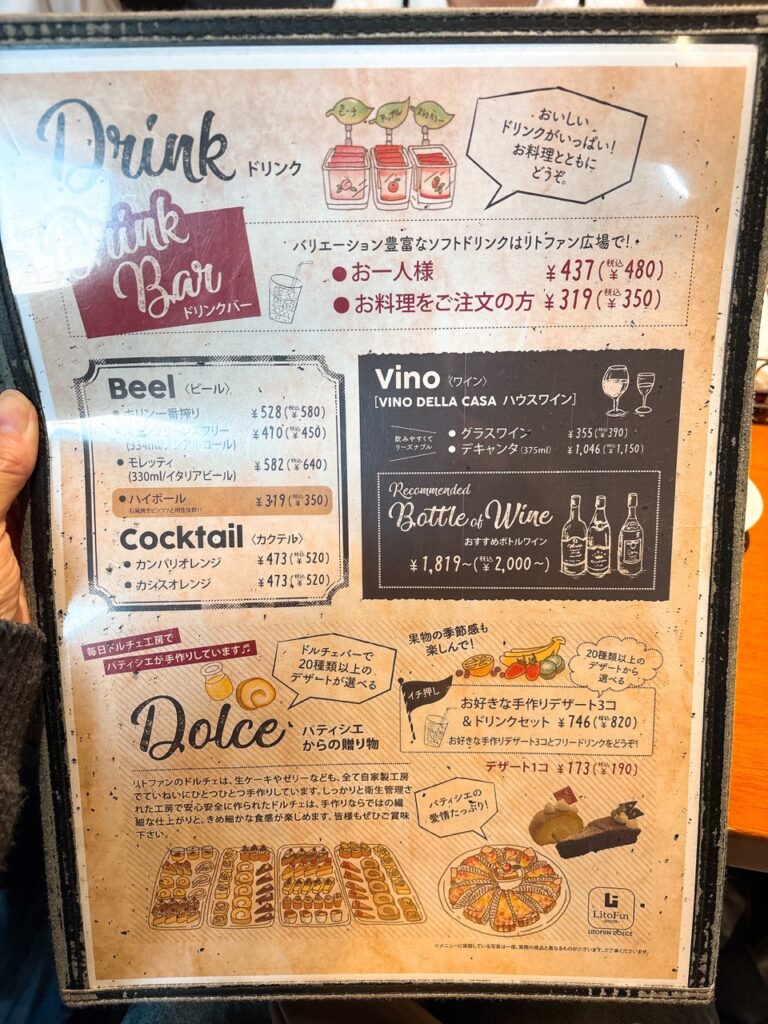 Drink ドリンク
ピーチ
アップル
おいしい
ドリンクがいっぱい!
お料理とともに
どうぞ。
Drink
Bar
ドリンクバー
バリエーション豊富なソフトドリンクはリトファン広場で!
●お一人様 ¥437(税込¥480)
●お料理をご注文の方 ¥319(税込¥350)
Beel〈ビール〉
●キリン一番搾り ¥528(税込¥580)
¥410(税込¥450)
(334ml/ノンアルコール)
●モレッティ ¥582(税込¥640)
(330ml/イタリアビール)
●ハイボール ¥319(税込¥350)
石窯焼きピッツァと相性抜群!!
Cocktail〈カクテル〉
●カンパリオレンジ ¥473(税込¥520)
●カシスオレンジ ¥473(税込¥520)
Vino〈ワイン〉
[VINO DELLA CASA ハウスワイン]
飲みやすくて
リーズナブル
●グラスワイン ¥355(税込¥390)
●デキャンタ(375ml) ¥1,046(税込¥1,150)
Recommended
Bottle of Wine
おすすめボトルワイン
¥1,819~(税込¥2,000~)
毎日ドルチェ工房で
パティシエが手作りしています♫
ドルチェバーで
20種類以上の
デザートが選べる
Dolce パティシエ
からの贈り物
リトファンのドルチェは、生ケーキやゼリーなども、全て自家製工房
でていねいにひとつひとつ手作りしています。しっかりと衛生管理さ
れた工房で安心安全に作られたドルチェは、手作りならではの繊
細な仕上がりと、きめ細かな食感が楽しめます。皆様もぜひご賞味
下さい。
果物の季節感も
楽しんで!
20種類以上の
デザートから
選べる
イチ押し
お好きな手作りデザート3コ
&ドリンクセット ¥746(税込¥820)
お好きな手作りデザート3コとフリードリンクをどうぞ!
デザート1コ ¥173(税込¥190)
パティシエの
愛情たっぷり!
LitoFun
DOLCE
LITOFUN DOLCE
※メニューに掲載している写真は一部、実際の商品と異なるものがございます。ご了承くださいませ。